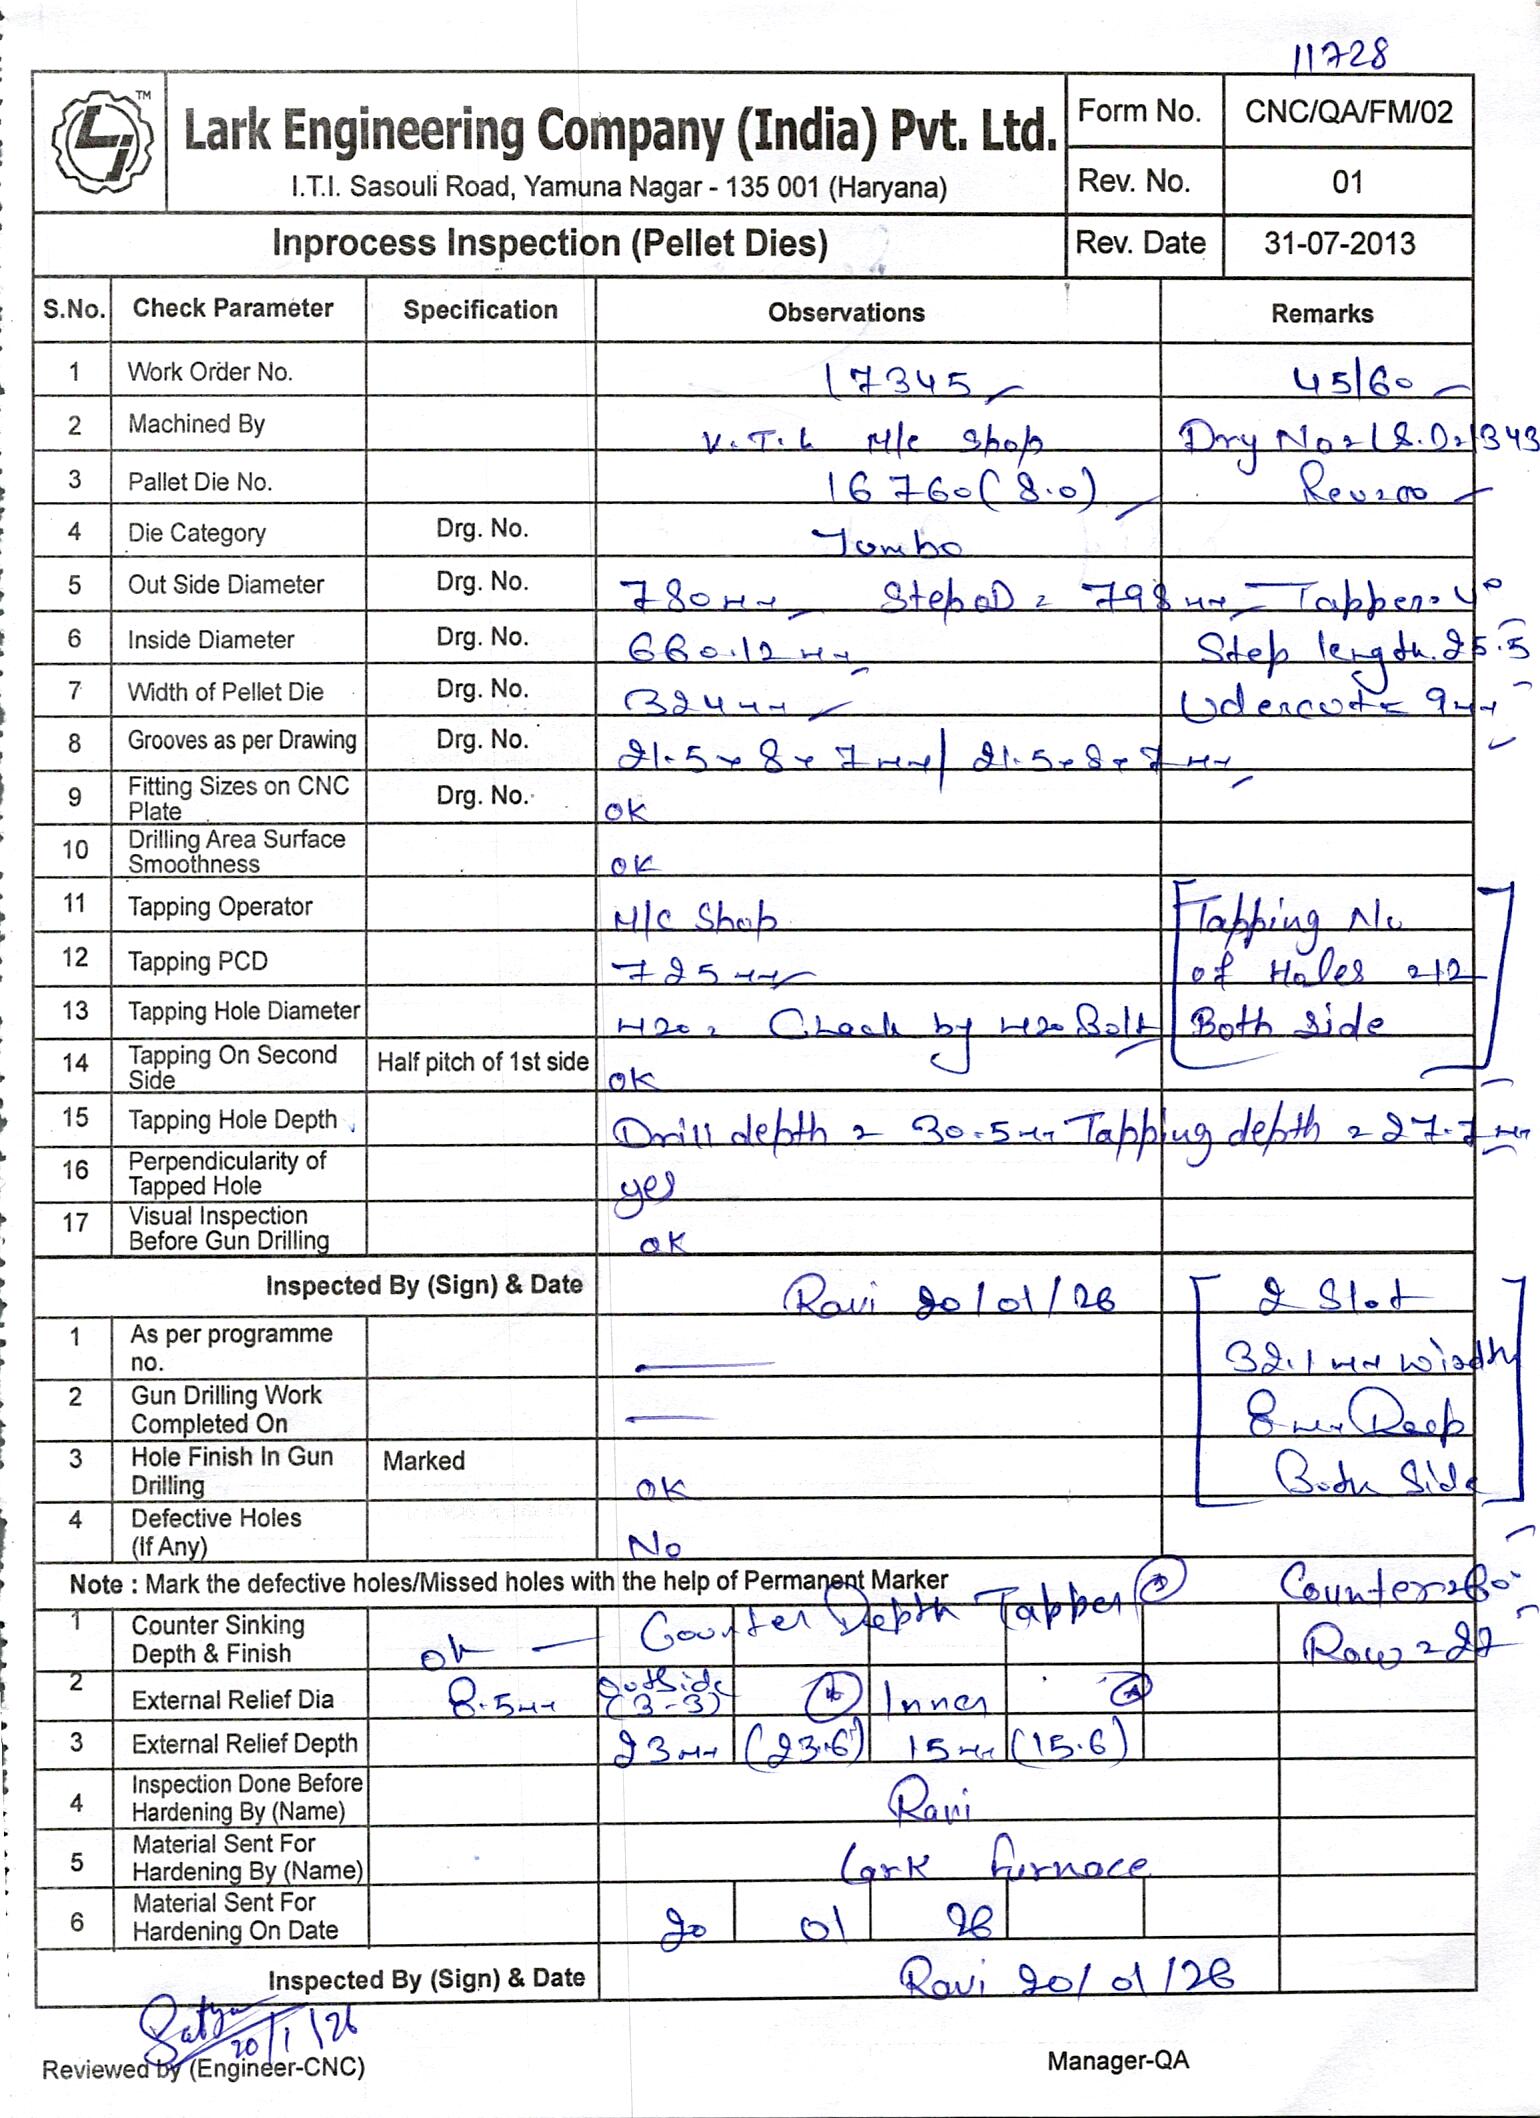 11728
TM
Lark Engineering Company (India) Pvt. Ltd.
I.T.I. Sasouli Road, Yamuna Nagar - 135 001 (Haryana)
Form No. CNC/QA/FM/02
Rev. No. 01
Inprocess Inspection (Pellet Dies) Rev. Date 31-07-2013
S.No. Check Parameter Specification Observations Remarks
1 Work Order No. 17345 45/60
2 Machined By V.T.L M/C Shop Drg No = L8.D=1343
3 Pallet Die No. 16760(8.0) Rev=00
4 Die Category Drg. No. Jumbo
5 Out Side Diameter Drg. No. 780mm Step OD = 798mm Tapper = 4°
6 Inside Diameter Drg. No. 660.12mm Step length. 25.5
7 Width of Pellet Die Drg. No. 324mm Udercut = 9mm
8 Grooves as per Drawing Drg. No. 21.5 x 8 x 7mm / 21.5 x 8 x 7mm
9 Fitting Sizes on CNC Plate Drg. No. ok
10 Drilling Area Surface Smoothness ok
11 Tapping Operator M/C Shop Tapping No
12 Tapping PCD 725mm of Holes = 12
13 Tapping Hole Diameter M20 = Check by M20 Bolt Both Side
14 Tapping On Second Side Half pitch of 1st side ok
15 Tapping Hole Depth Drill depth = 30.5mm Tapping depth = 27.7mm
16 Perpendicularity of Tapped Hole yes
17 Visual Inspection Before Gun Drilling ok
Inspected By (Sign) & Date Ravi 20/01/26 2 Slot
1 As per programme no. — 32.1mm Wiodth
2 Gun Drilling Work Completed On — 8mm Deep
3 Hole Finish In Gun Drilling Marked OK Both Side
4 Defective Holes (If Any) No
Note : Mark the defective holes/Missed holes with the help of Permanent Marker
1 Counter Sinking Depth & Finish ok — Counter Depth Tapper Counter = 60°
Row = 22
2 External Relief Dia 8.5mm Outside (3-3) Inner
3 External Relief Depth 23mm (23.6) 15mm (15.6)
4 Inspection Done Before Hardening By (Name) Ravi
5 Material Sent For Hardening By (Name) Lark furnace
6 Material Sent For Hardening On Date 20 01 26
Inspected By (Sign) & Date Ravi 20/01/26
Satya
20/1/26
Reviewed by (Engineer-CNC) Manager-QA